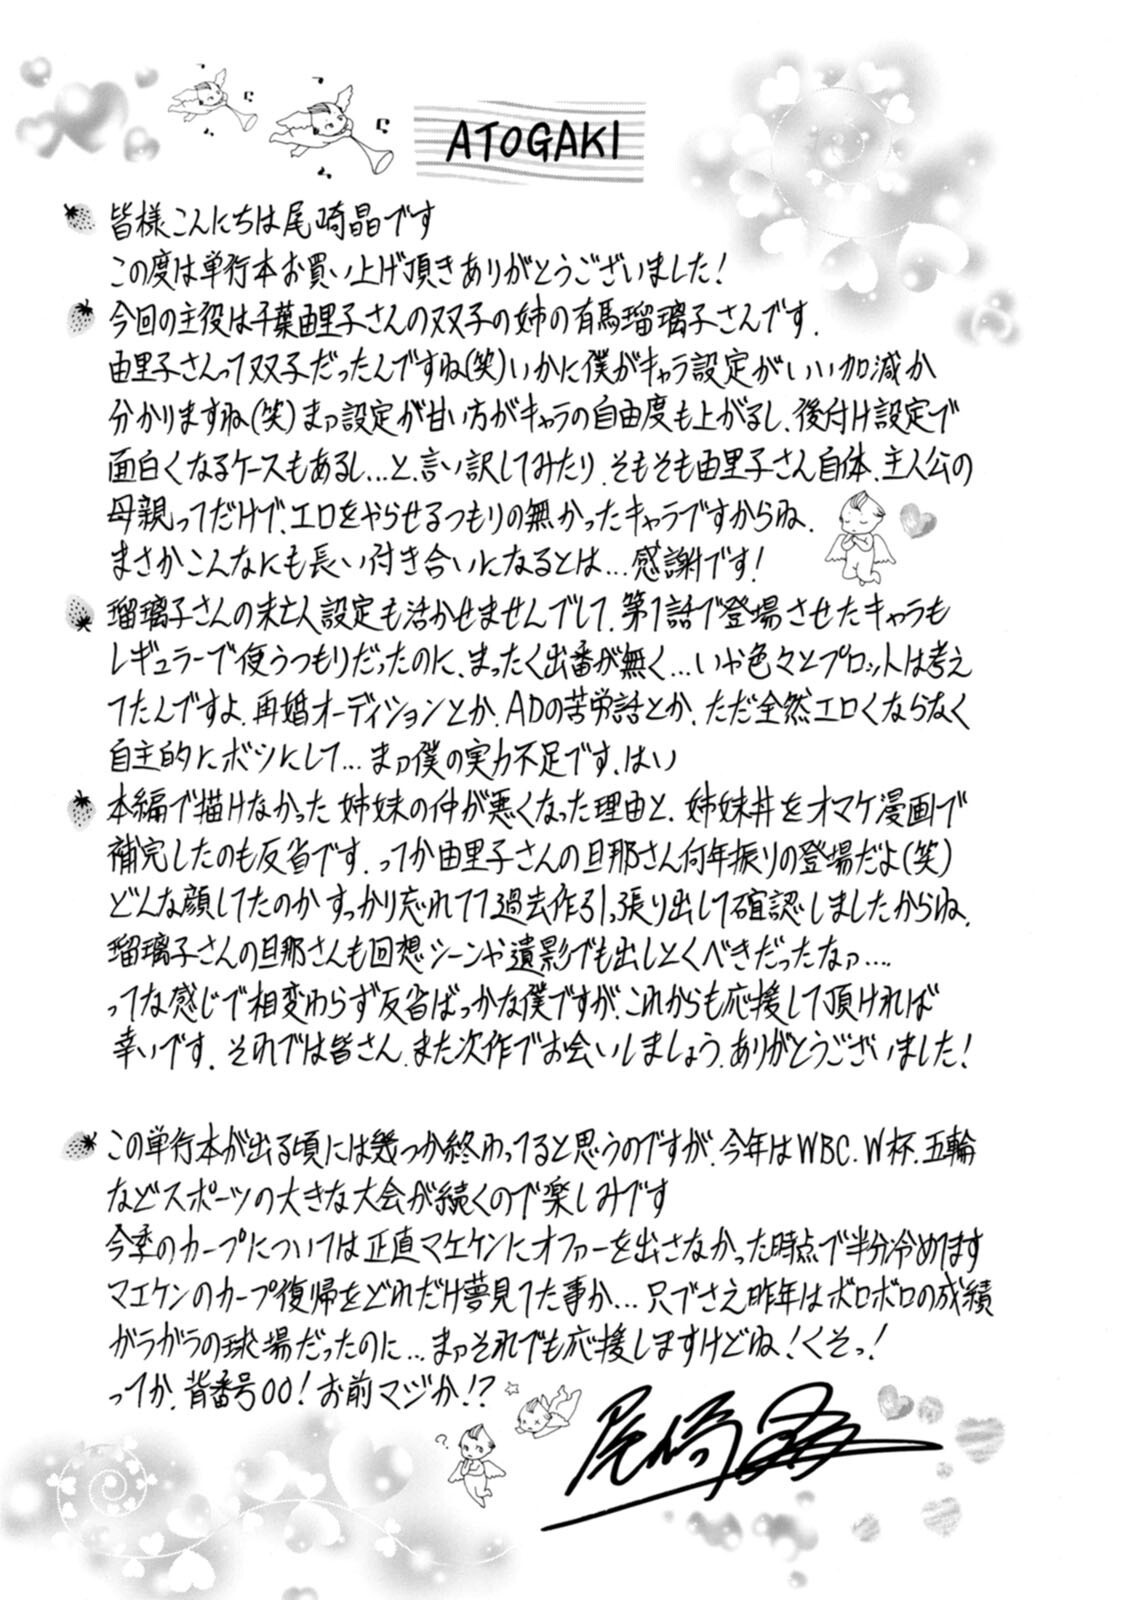 ATOGAKI
皆様こんにちは尾崎晶です
この度は単行本お買い上げ頂きありがとうございました!
今回の主役は千葉由里子さんの双子の姉の有馬瑠璃子さんです.
由里子さんって双子だったんですね(笑)いかに僕がキャラ設定がいい加減か
分かりますね(笑)まァ設定が甘い方がキャラの自由度も上がるし、後付け設定で
面白くなるケースもあるし...と、言い訳してみたり、そもそも由里子さん自体、主人公の
母親ってだけで、エロをやらせるつもりの無かったキャラですからね、
まさかこんなにも長い付き合いになるとは...感謝です!
瑠璃子さんの未亡人設定も活かせませんでして、第1話で登場させたキャラも
レギュラーで使うつもりだったのに、まったく出番が無く...いや色々とプロットは考え
てたんですよ、再婚オーディションとか、ADの苦労話とか、ただ全然エロくならなく
自主的にボツにして...まァ僕の実力不足です、はい
本編で描けなかった姉妹の仲が悪くなった理由と、姉妹丼をオマケ漫画で
補完したのも反省です.ってか由里子さんの旦那さん何年振りの登場だよ(笑)
どんな顔してたのかすっかり忘れてて過去作引っ張り出して確認しましたからね.
瑠璃子さんの旦那さんも回想シーンや遺影でも出しとくべきだったなァ....
ってな感じで相変わらず反省ばっかな僕ですが、これからも応援して頂ければ
幸いです.それでは皆さん、また次作でお会いしましょう、ありがとうございました!
この単行本が出る頃には幾つか終わってると思うのですが、今年はWBC、W杯、五輪
などスポーツの大きな大会が続くので楽しみです
今季のカープについては正直マエケンにオファーを出さなかった時点で半分冷めてます
マエケンのカープ復帰をどれだけ夢見てた事か...只でさえ昨年はボロボロの成績
ガラガラの球場だったのに...まァそれでも応援しますけどね!くそっ!
ってか、背番号00!お前マジか!?
尾崎晶